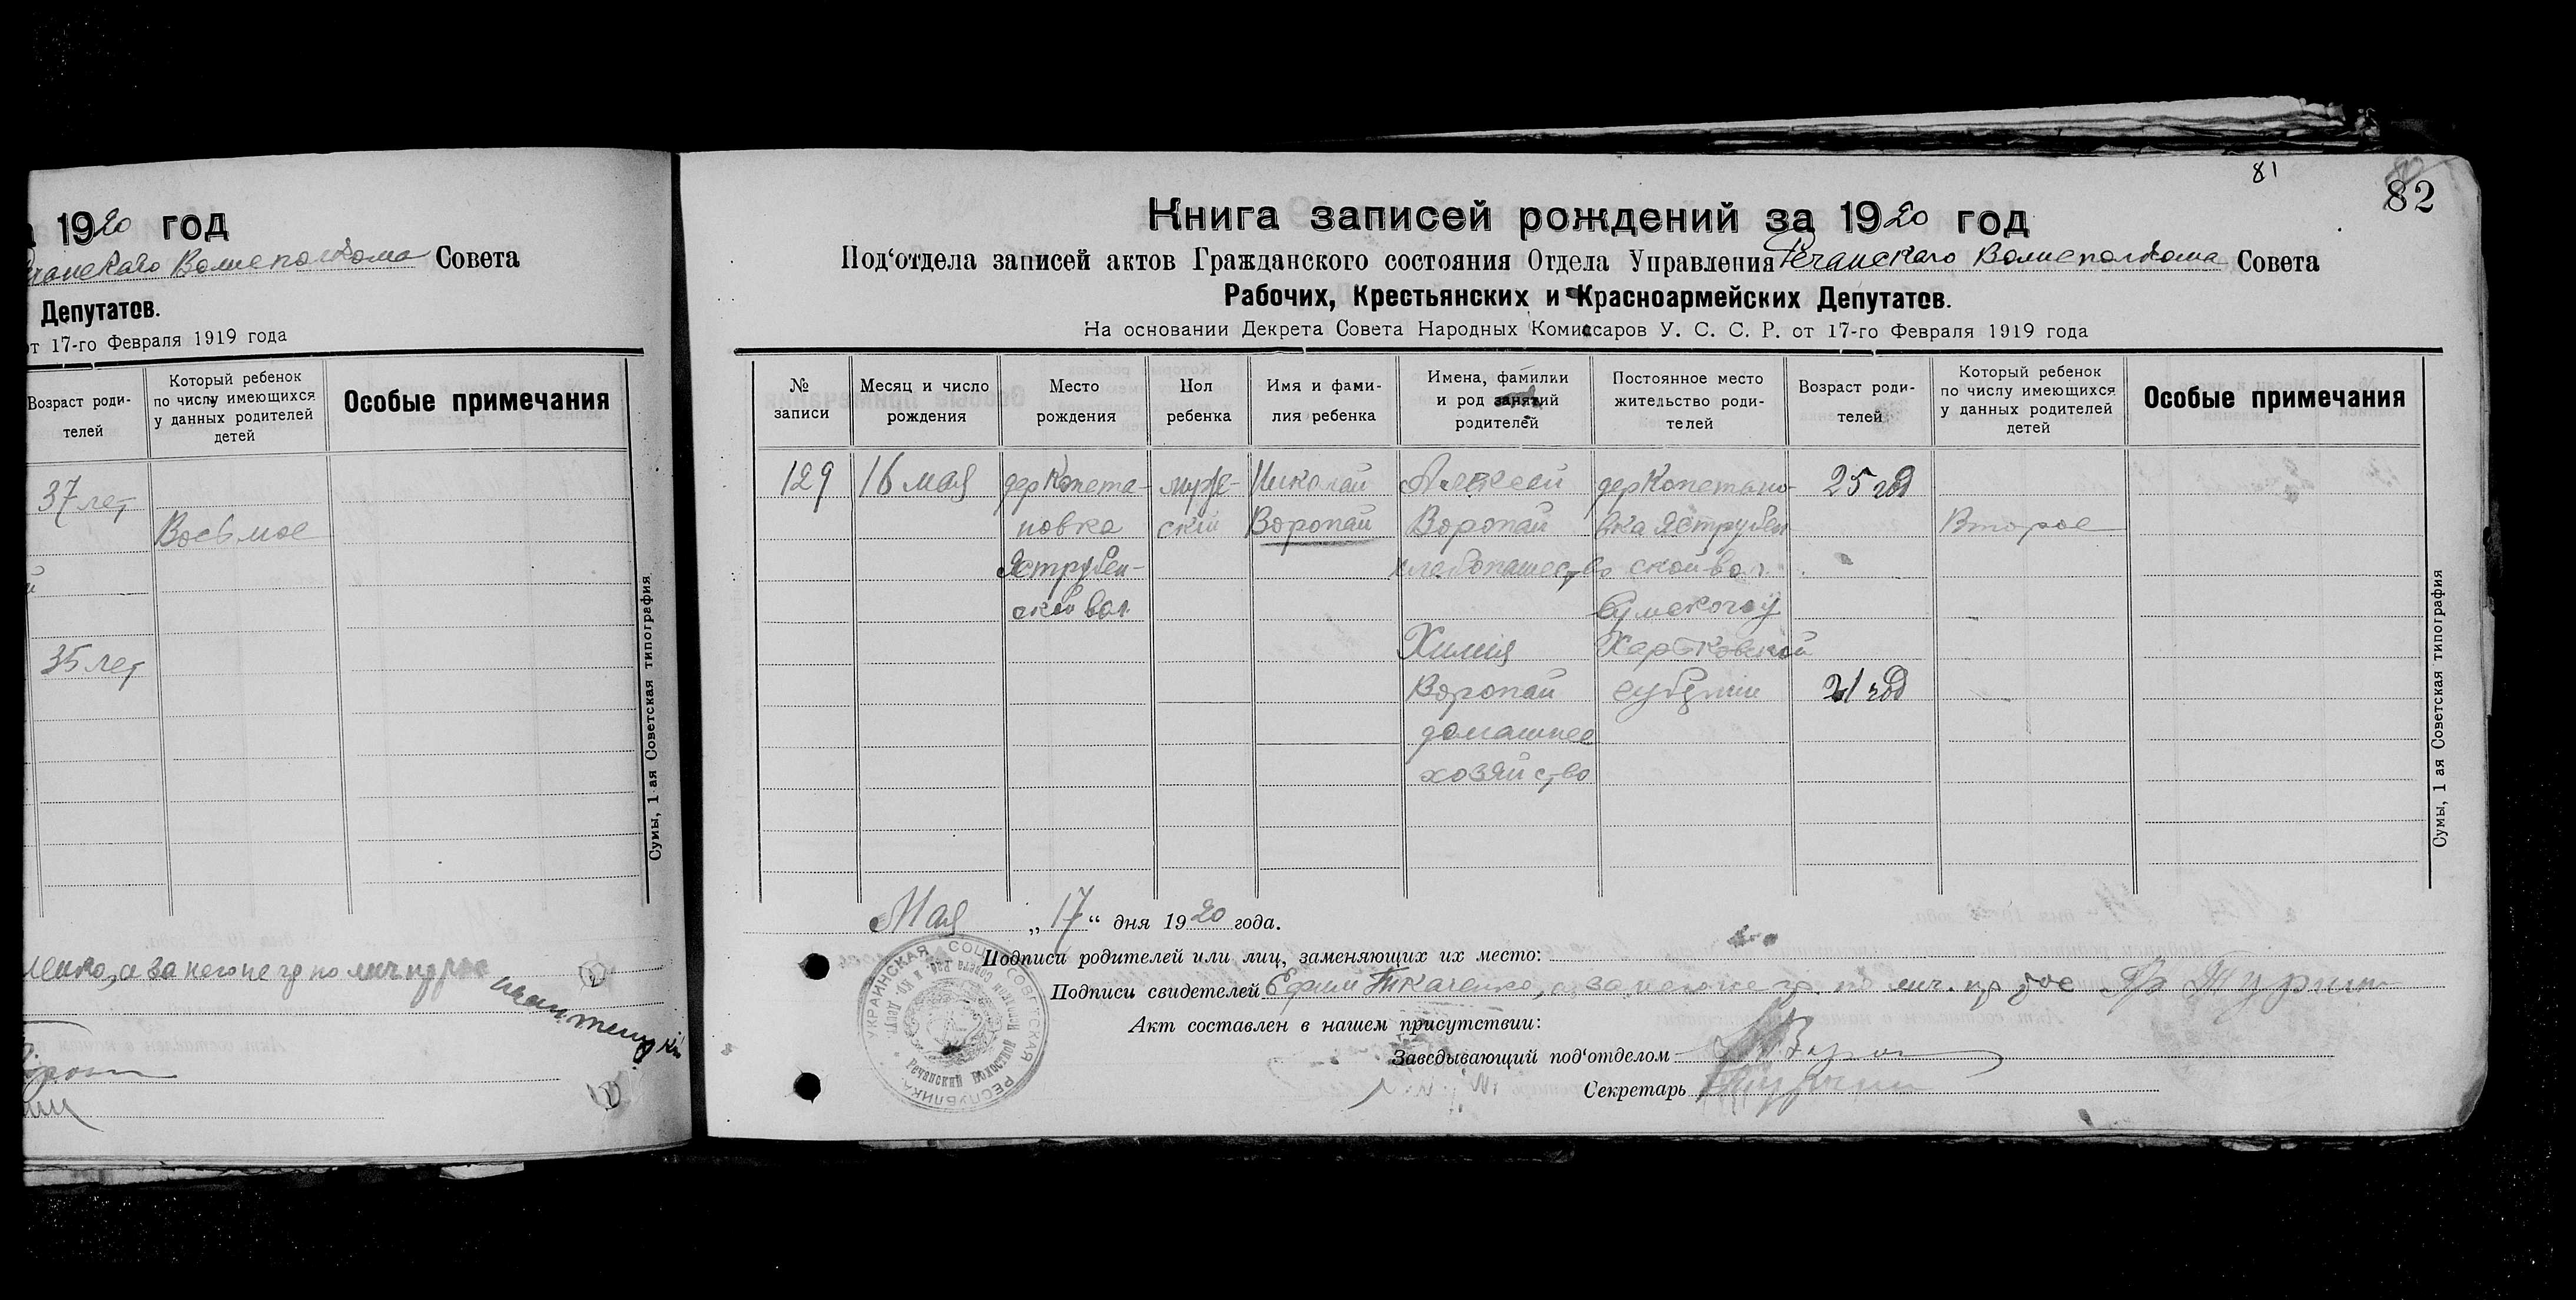 а 1920 год
Речанскаго Волисполкома Совета
Депутатов.
от 17-го Февраля 1919 года
Возраст роди-
телей
Который ребенок
по числу имеющихся
у данных родителей
детей
Особые примечания
37 лет
Восьмое
й
35 лет
Сумы, 1 ая Советская типография
ленко, а за него негр по лич просьбе
81
82
Книга записей рождений за 1920 год
Под‘отдела записей актов Гражданского состояния Отдела Управления Речанскаго Волисполкома Совета
Рабочих, Крестьянских и Красноармейских Депутатов.
На основании Декрета Совета Народных Комиссаров У. С. С. Р. от 17-го Февраля 1919 года
№
записи
Месяц и число
рождения
Место
рождения
Пол
ребенка
Имя и фами-
лия ребенка
Имена, фамилии
и род занятий
родителей
Постоянное место
жительство роди-
телей
Возраст роди-
телей
Который ребенок
по числу имеющихся
у данных родителей
детей
Особые примечания
129
16 мая
дер Копета-
новка
Яструбен-
ской вол.
муже-
ский
Николай
Воропай
Алексей
Воропай
хлебопашество
Химия
Воропай
домашнее
хозяйство
дер Копетано-
вка Яструбен
ской вол.
Сумского у
Харьковской
губернии
25 год
21 год
Второе
Сумы, 1 ая Советская типография
Мая „17“ дня 1920 года.
Подписи родителей или лиц, заменяющих их место:
Подписи свидетелей Ефим Ткаченко, а за него негр. по лич. пр
Акт составлен в нашем присутствии:
Заведывающий под‘отделом
Секретарь
УКРАИНСКАЯ СОЦ. СОВЕТСКАЯ РЕСПУБЛИКА
Речанский Волостной